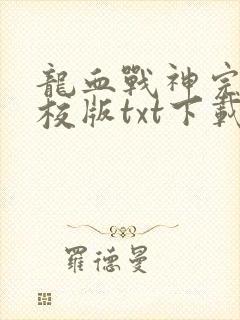 龍血戰神完
校版txt下載
羅德曼